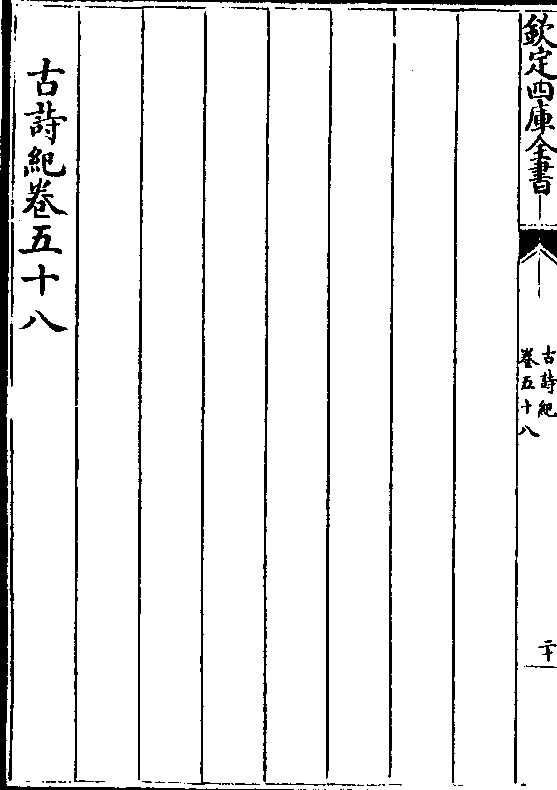 欽定四庫全書
古詩紀
卷五十八
二十
古詩紀卷五十八